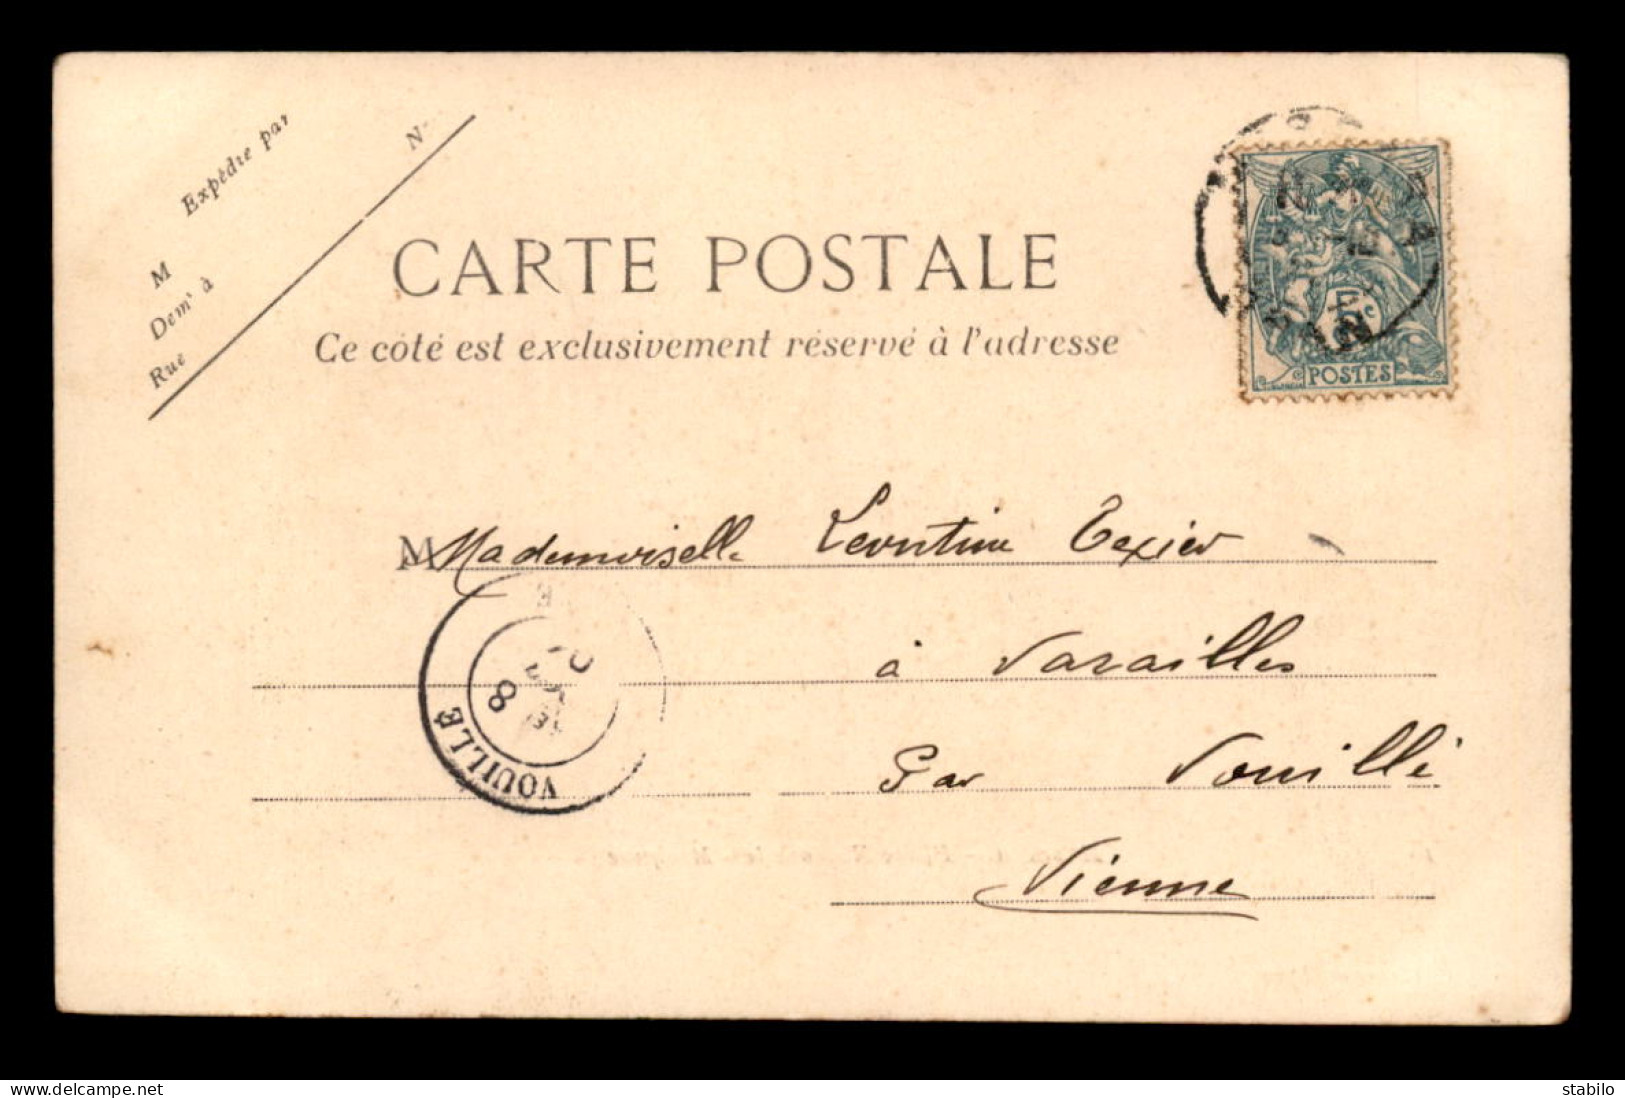 Expédié par
M
N°
Demt à
Rue
CARTE POSTALE
Ce côté est exclusivement réservé à l'adresse
5c
POSTES
M Mademoiselle Leontine Texier
à Varailles
Par Vouillé
Vienne
8
VOUILLÉ
www.delcampe.net
stabilo